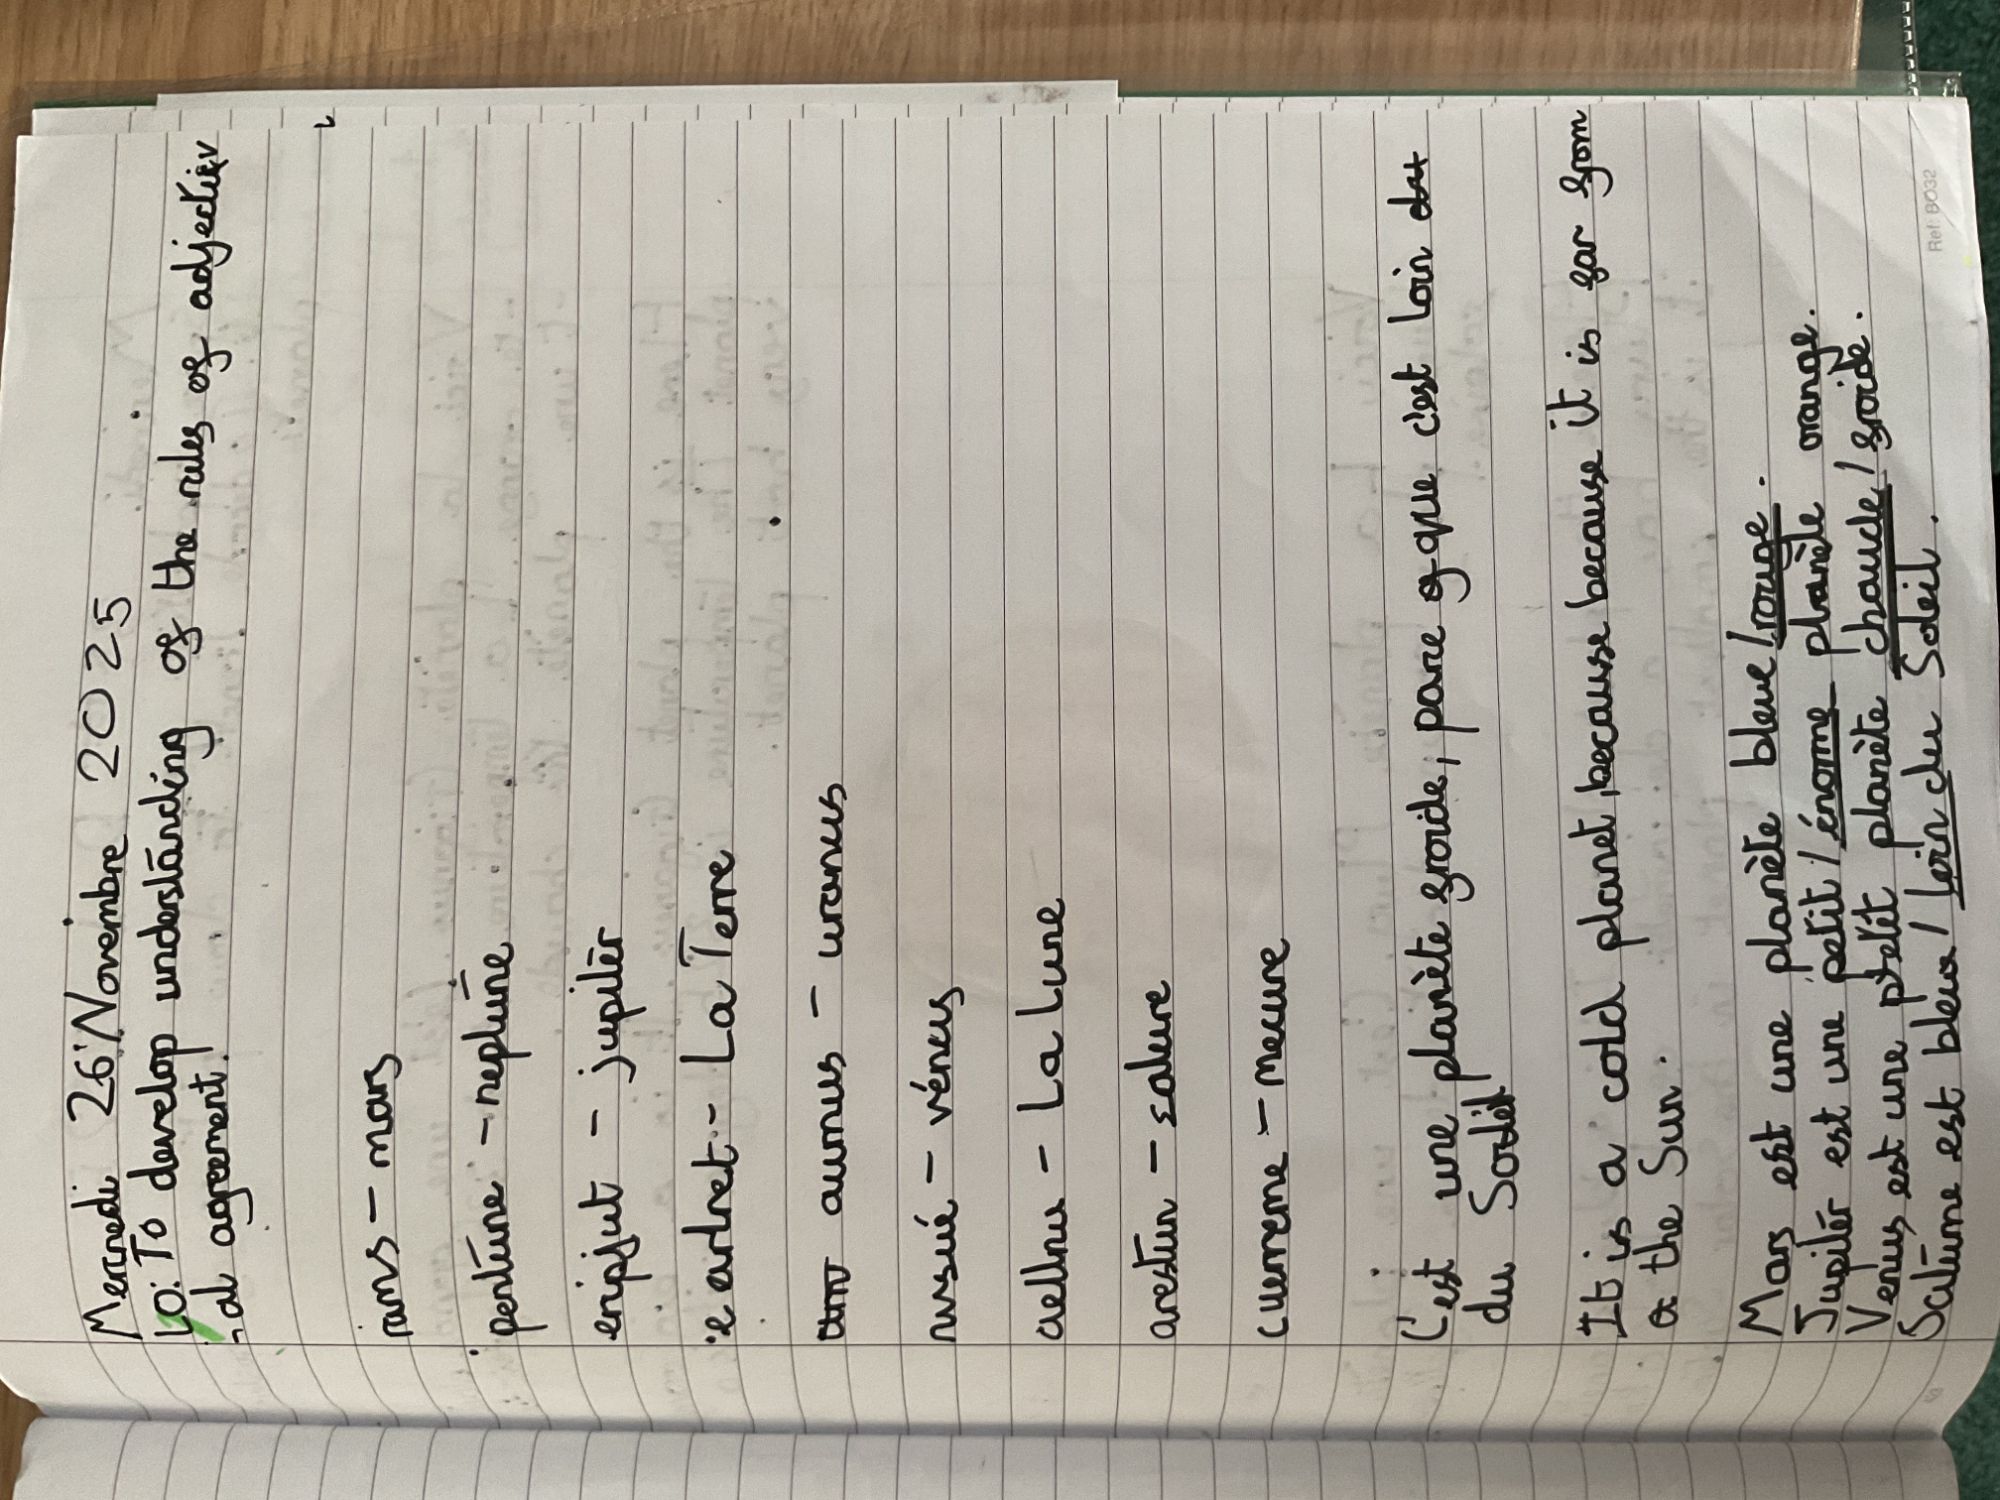 Mercredi 26 Novembre 2025
LO: To develop understanding of the rules of adjectiv
-al agreement.
rams - mars
pentune - neptune
eripjut - jupiter
e artret - La Terre
aumus - uranus
nvsué - vénus
aellnu - La Lune
arestun - saturne
cuurreme - mecure
C'est une planète froide, parce que c'est loin
du Soleil
It is a cold planet, because because it is far from
the Sun.
Mars est une planète bleue / rouge.
Jupiter est une petit / énorme planète orange.
Venus est une petit planète chaude / froide.
Saturne est bleu / loin du Soleil.
Ref: BO32